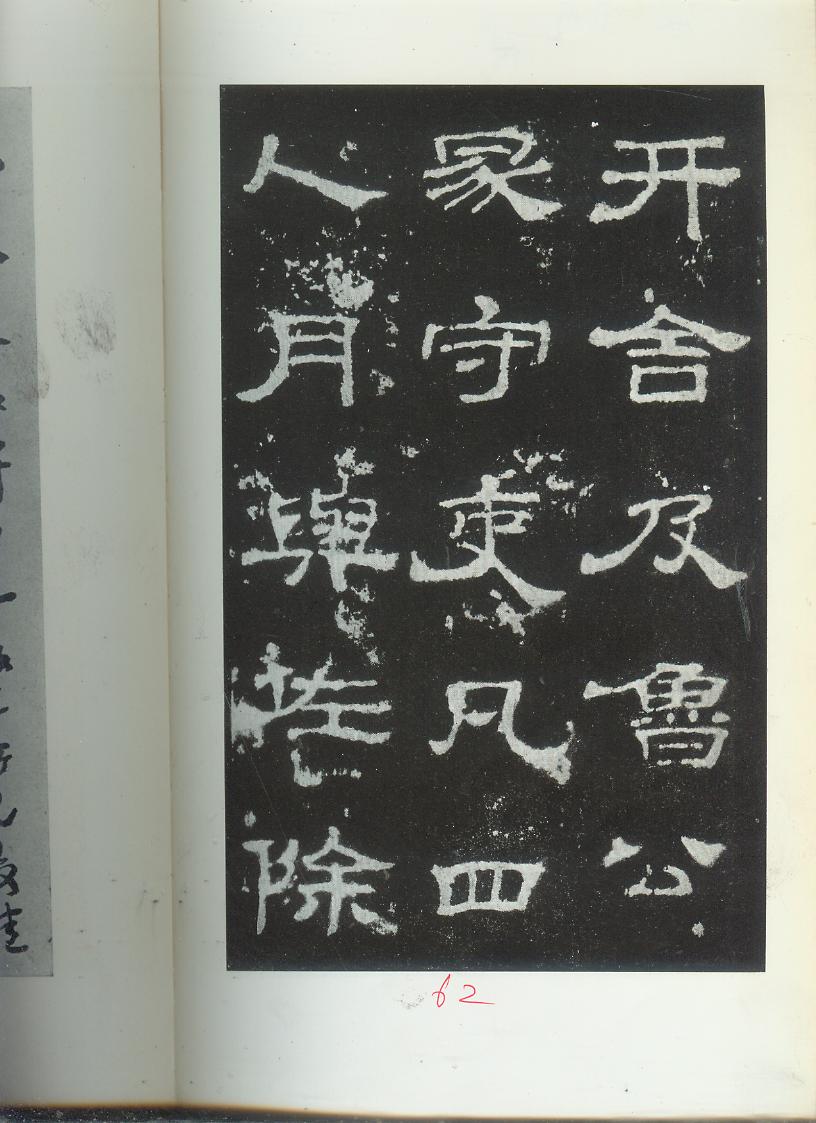 开舍及魯公
冢守吏凡四
人月與佐除
62